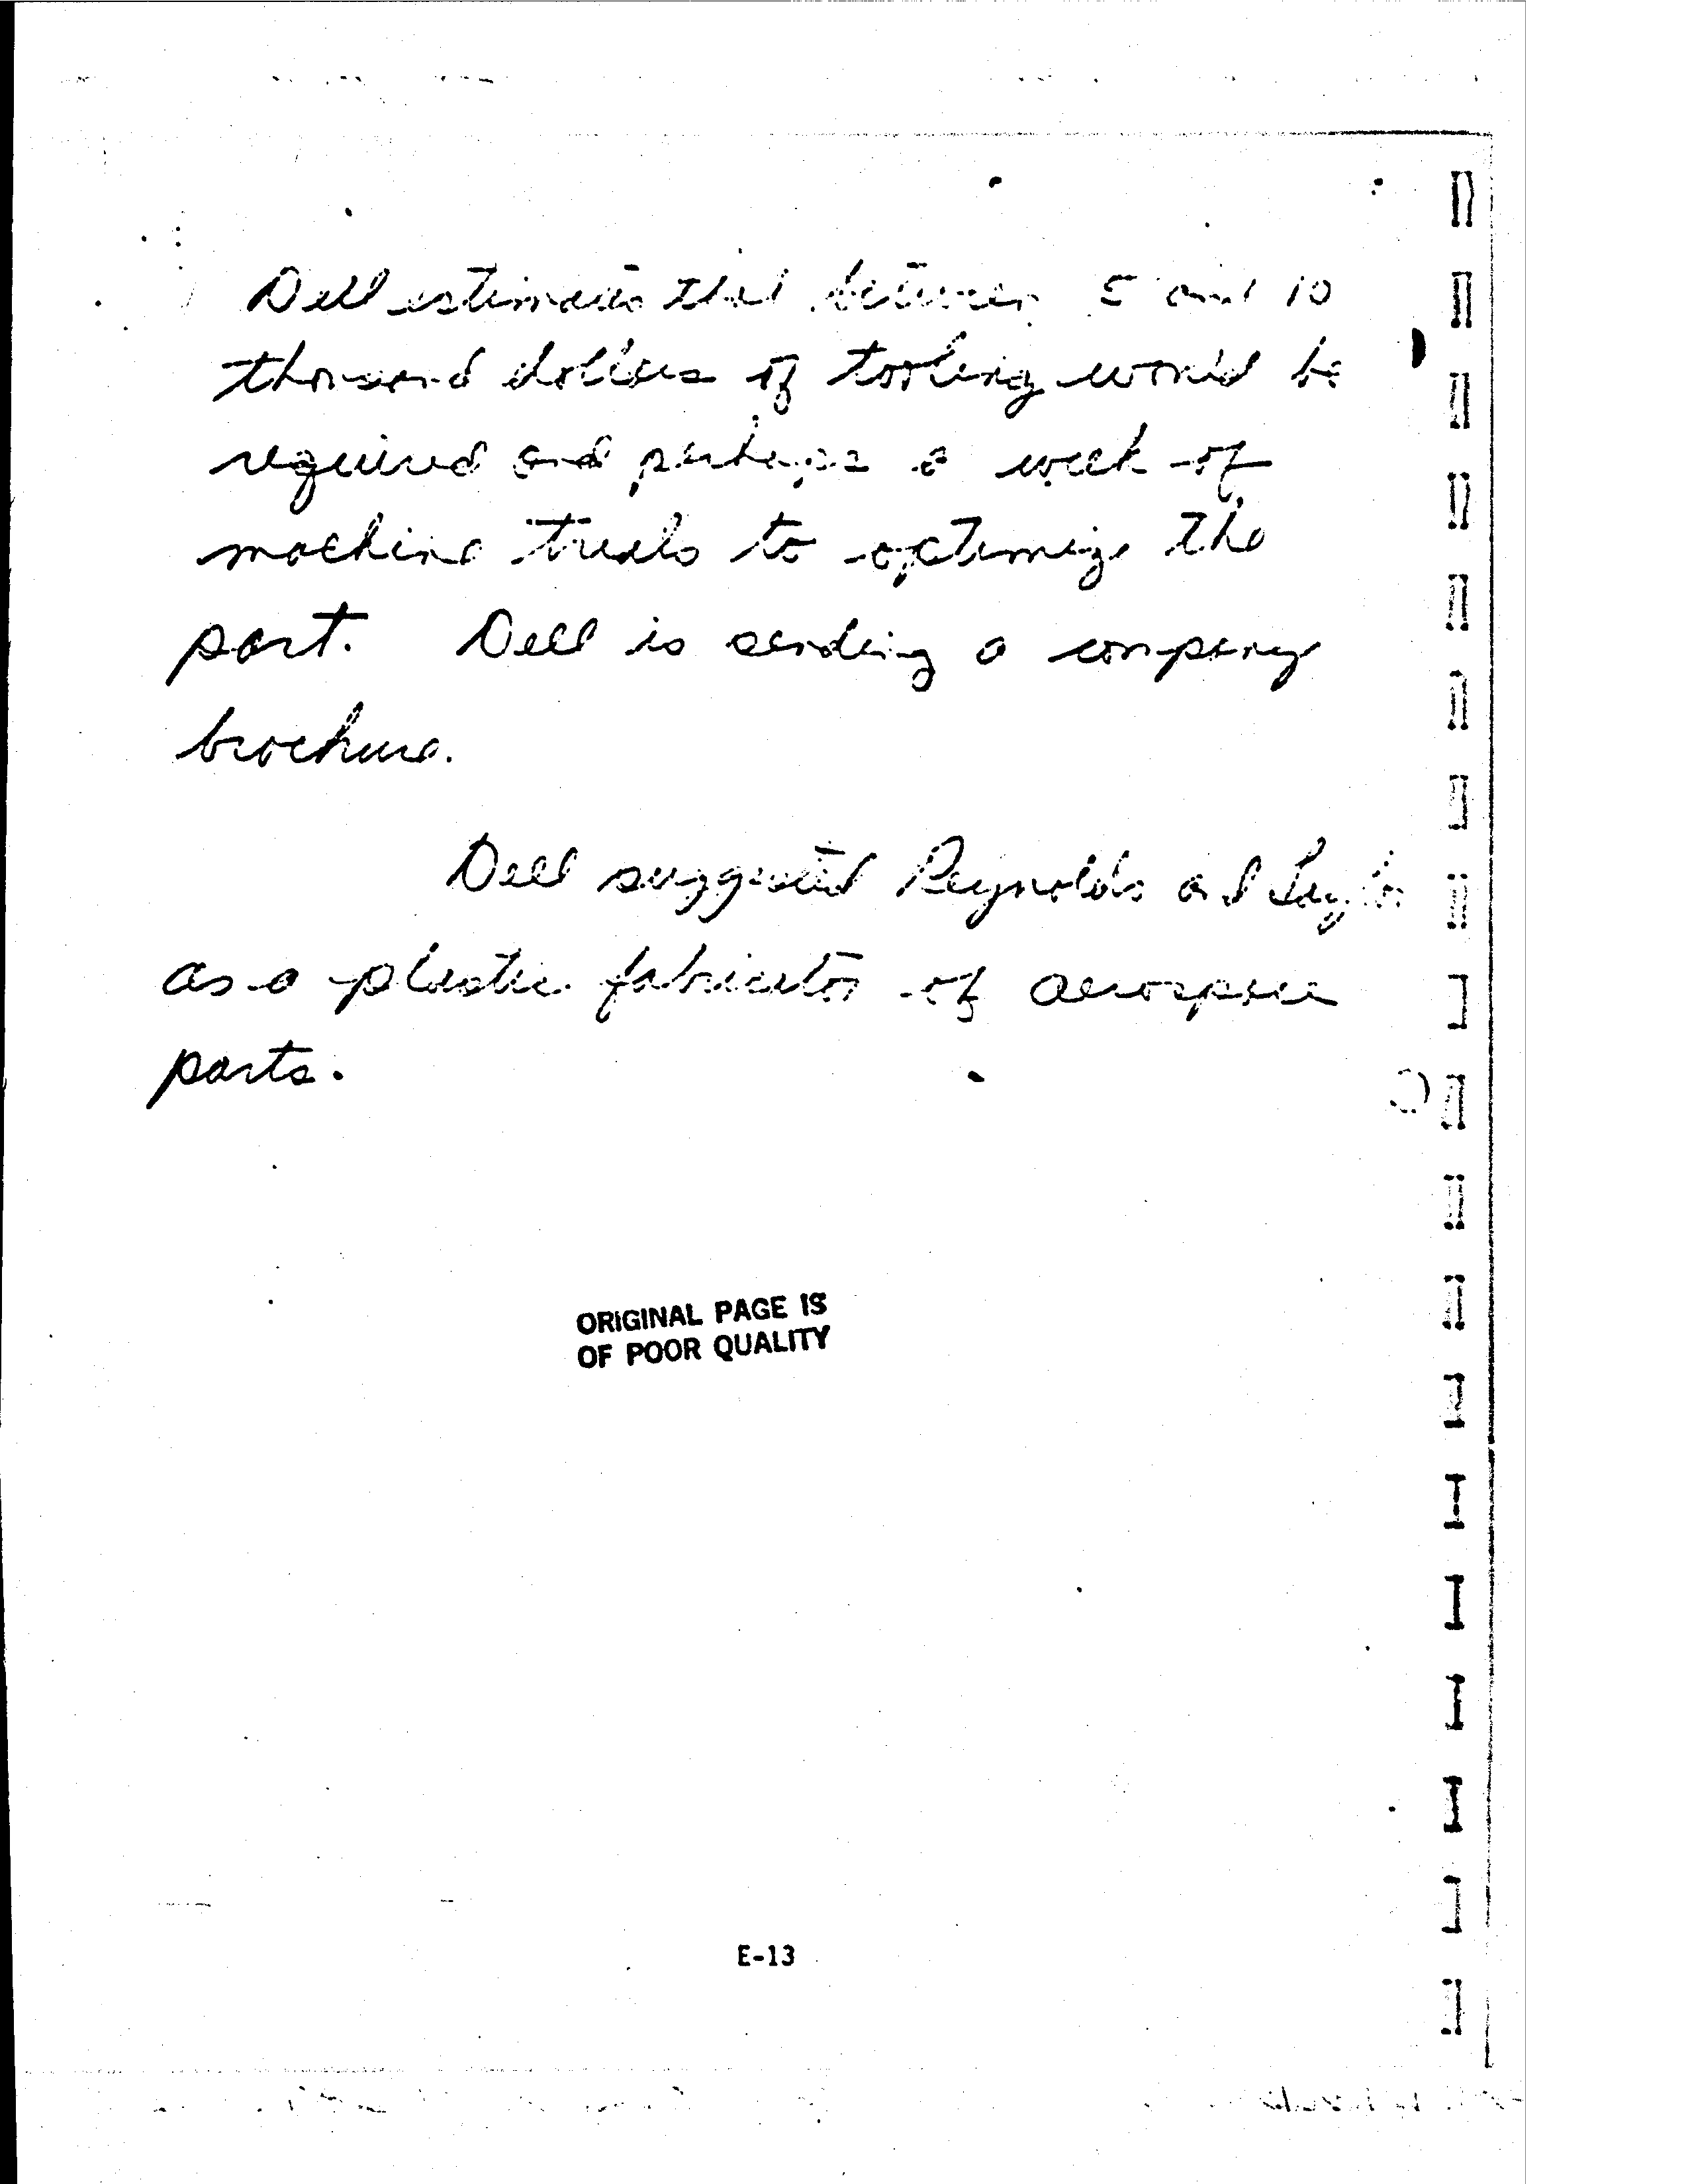 Dell estimates that between 5 and 10
thousand dollars of tooling would be
required and perhaps a week of
machine trials to optimize the
part. Dell is sending a company
brochure.
Dell suggested Reynolds and Taylor
as a plastic fabricator of aerospace
parts.
ORIGINAL PAGE IS
OF POOR QUALITY
E-13